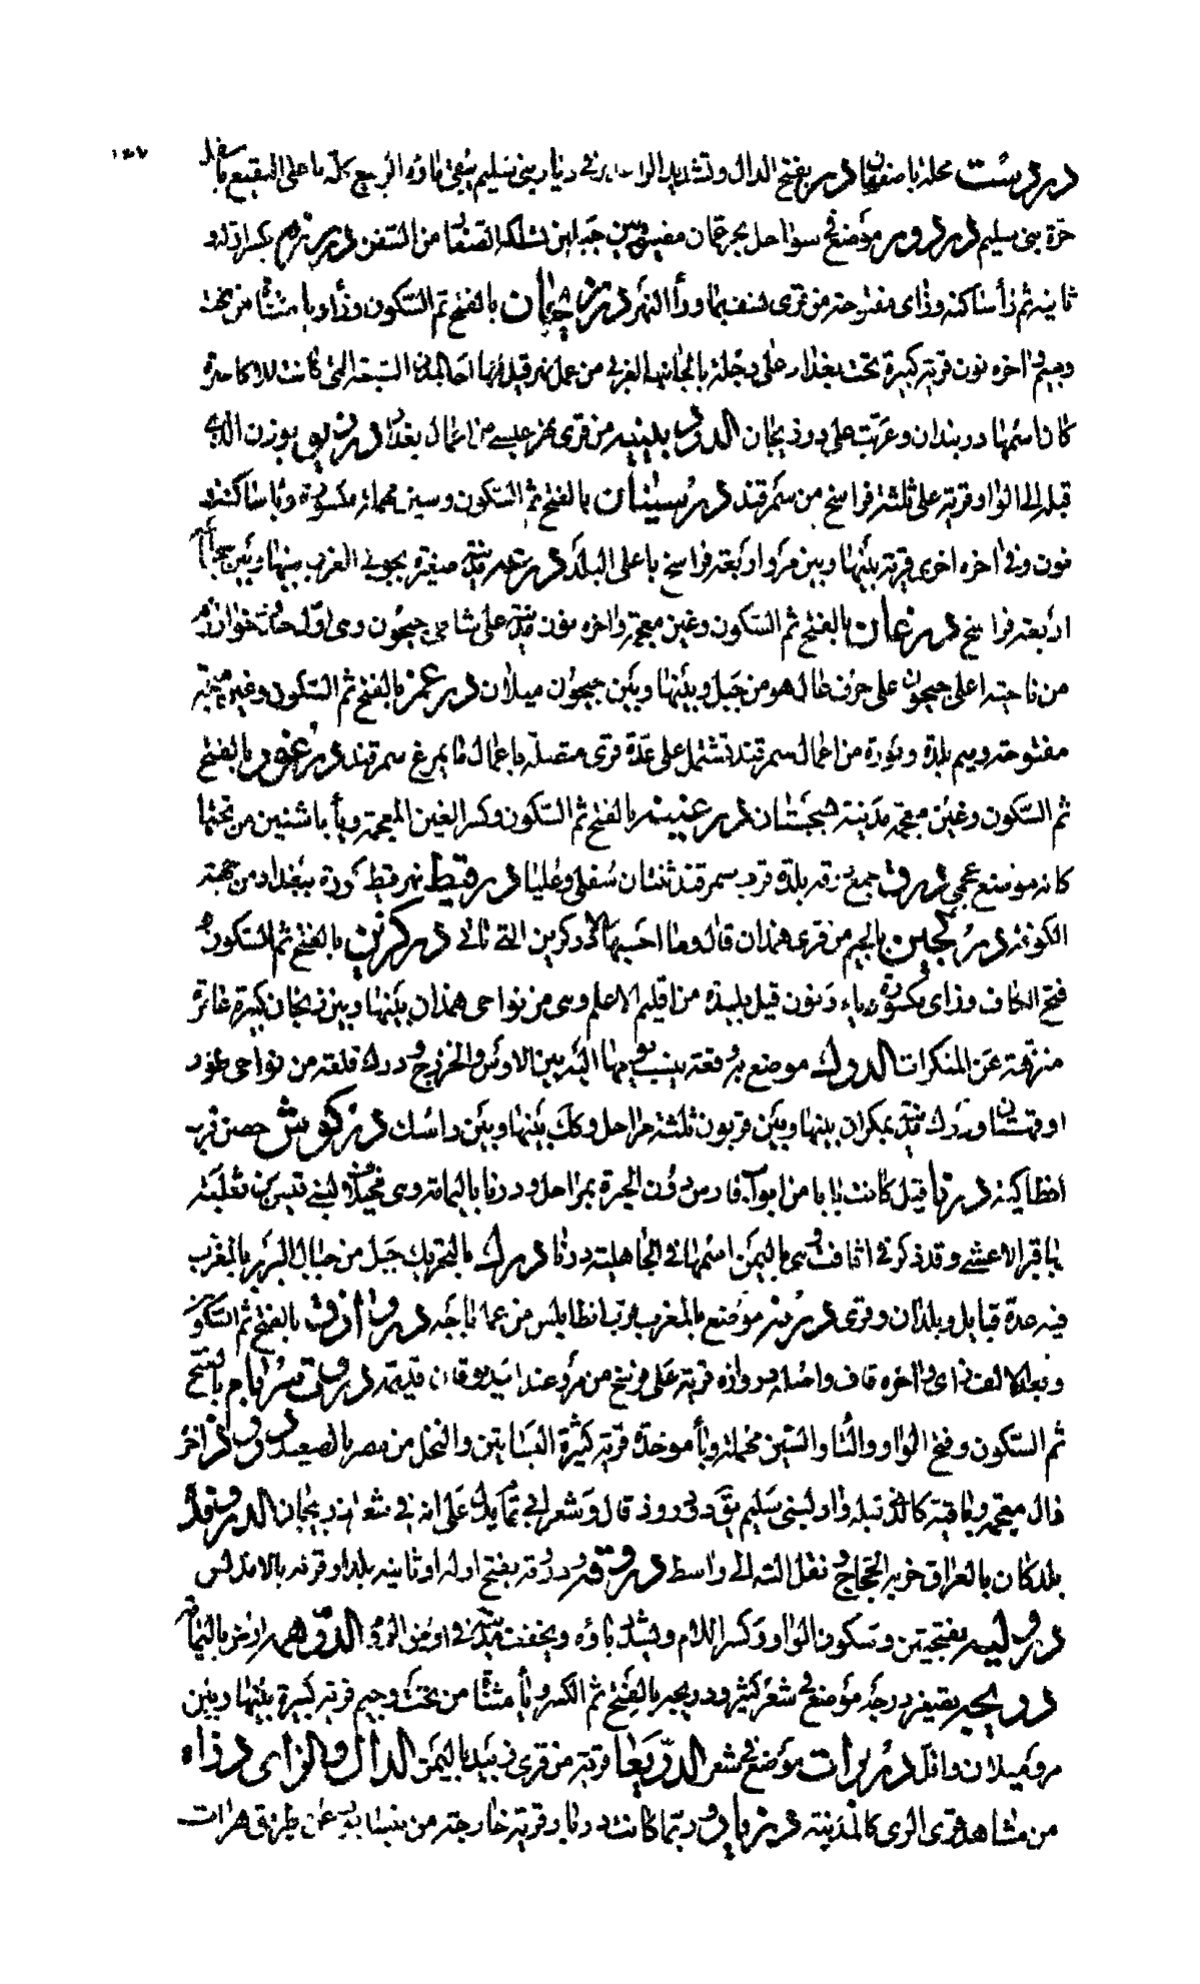 ١٤٧
در دشت محلة باصفهان در بفتح الدال وتشديد الراء غدير في ديار بني سليم يبقى ماؤه الربيع كله ما على النقيع باسفل
حرة بني سليم دردور موضع في سواحل بحر عمان مضيق بين جبلين تسلكه الصغار من السفن درزدهم بكسر اوله و
ثانيه ثم زا ساكنة وزاى مفتوحة من قرى نسف بما ورا النهر درزيجان بالفتح ثم السكون وزا و يا مثناة من تحت
وجيم في اخره نون قرية كبيرة تحت بغداد على دجلة بالجانب الغربي من عمل نهر قيل انها احد المدن السبعة التي كانت للاكاسرة
كان اسمها درزبندان وعربت على درزيجان الدرزبينية من قرى نهر عيسى من اعمال بغداد درزيو بوزن الذي
قبله الى الواو قرية على ثلثة فراسخ من سمرقند درسينان بالفتح ثم السكون وسين مهملة مكسورة ويا ساكنة و
نون وفي اخره اخرى قرية بينها وبين مرو اربعة فراسخ باعلى البلد درعة مدينة صغيرة بجوبي الغرب بينها وبين سجلماسة
اربعة فراسخ درغان بالفتح ثم السكون وغين معجمة واخره نون مدينة على شاطي جيحون وهى اول حدود خوارزم
من ناحية اعلى جيحون على جرف عال هو من جبل وبينها وبين جيحون ميلان درغم بالفتح ثم السكون وغين معجمة
مفتوحة وميم بلدة وكورة من اعمال سمرقند تشتمل على عدة قرى متصلة باعمال مايمرغ سمرقند درغوز بالفتح
ثم السكون وغين معجمة مدينة بسجستان درغينة بالفتح ثم السكون وكسر الغين المعجمة ويأ باثنتين من تحتها
كانه موضع عجمي درق جمع درقة بلدة قرب سمرقند ثنتان سفلى وعليا درقيط نهر درقيط كورة ببغداد من جهة
الكوفة دركجين بالجيم من قرى همذان قال وما احسبها الا دركزين التي تاتي دركزين بالفتح ثم السكون و
فتح الكاف وزاى مكسورة وياء ونون قيل بليدة من اقليم الاعلم وهى من نواحى همذان بينها وبين زنجان كبيرة عامرة
منزهة عن المنكرات الدرك موضع به وقعة بين الاوس والخزرج ودرك قلعة من نواحى طوس
او قهستان ودرك مدينة بمكران بينها وبين قربون ثلثة مراحل وكك بينها وبين راسك دركوش حصن قرب
انطاكية درنا قيل كانت بابا من ابواب فارس دون الحيرة بمراحل ودرنا باليمامة وهى نخيلات لبني قيس بن ثعلبة
بها قبر الاعشى وقد ذكر في اثافت وهى باليمن اسمها في الجاهلية درنا درن بالتحريك جبل من جبال البربر بالمغرب
فيه عدة قبايل وبلدان وقرى درنة موضع بالمغرب قرب انطابلس من عمل باجه دروازق بالفتح ثم السكون
وبعد الالف زاى وفي اخره قاف واصله دروازه قرية على فرسخ من مرو عند الديوقان قديمة دروت سربام بالفتح
ثم السكون وفتح الواو والتا والسين مهملة وبا موحدة قرية كثيرة البساتين والنخل من مصر بالصعيد دروذ اخره
ذال معجمة وباقيه كالذي قبله واد لبني سليم يق ذو دروذ قال وشعر ابي تمام يدل على انه في ثغور اذربيجان الدروقة
بلد كان بالعراق خربه الحجاج ونقل الته الى واسط دروقة درقة بفتح اوله وثانيه بلد او قرية بالاندلس
دروليه بفتحتين وسكون الواو وكسر اللام وتشديد ياؤه ويخفف مدينة في ارض الروم الدرهم ارض باليمامة
دريجة تصغير درجة موضع في شعر كثير ودريجه بالفتح ثم الكسر ويا مثناة من تحت وجيم قرية كبيرة بينها وبين
مرو ميلان واقل دريرات موضع في شعر الدريعا قرية من قرى زبيد باليمن الدال والزاى دزاه
من مشاهد قرى الرى كالمدينة دزباد وربما كانت درباد قرية خارجة من نيسابور على طريق هراة